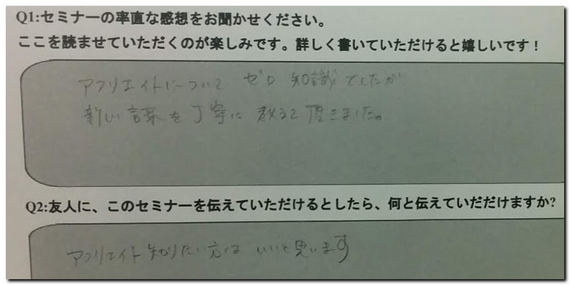 Q1:セミナーの率直な感想をお聞かせください。
ここを読ませていただくのが楽しみです。詳しく書いていただけると嬉しいです！
アフリエイトについて ゼロ 知識でしたが
新しい言葉を丁寧に教えて頂きました。
Q2:友人に、このセミナーを伝えていただけるとしたら、何と伝えていだだけますか?
アフリエイト知りたい方は いいと思います